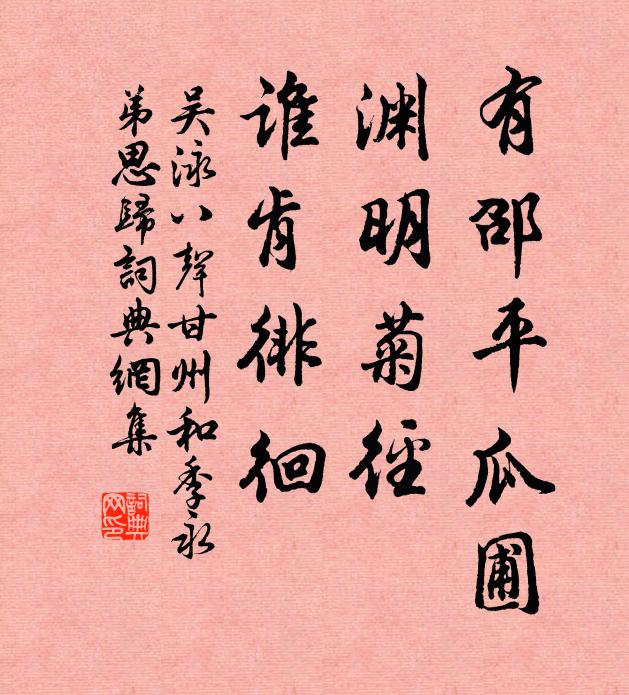 有邵平瓜圃
渊明菊径
谁肯徘徊
吴泳八聲甘州和季永
弟思歸詞典網集
詞典
网印